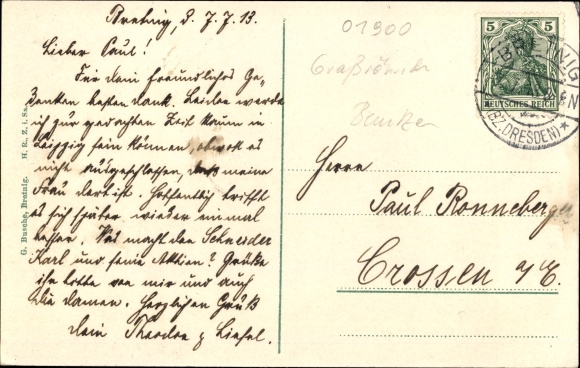 Bretnig, d. 7.7.13.
Lieber Paul!
Für Dein freundliches Ge-
denken besten Dank. Leider werde
ich zur gedachten Zeit kaum in
Leipzig sein können, obwohl es
nicht ausgeschlossen, daß meine
Frau dort ist. Hoffentlich trifft
es sich später wieder einmal
besser. Was macht der Schneider
Karl und seine Aktien? Grüße
ihn bitte von mir und auch
die Damen. Herzlichen Gruß
Dein Theodor & Liesel.
G. Busche, Bretnig. H. R., Z. i. Sa.
01900
Großröhrsdorf
Bautzen
5 5
DEUTSCHES REICH
(BZ. DRESDEN)
Herrn
Paul Ronneberger
Crossen a/E.